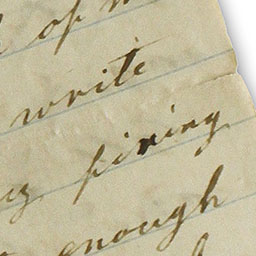 of
write
firing
enough